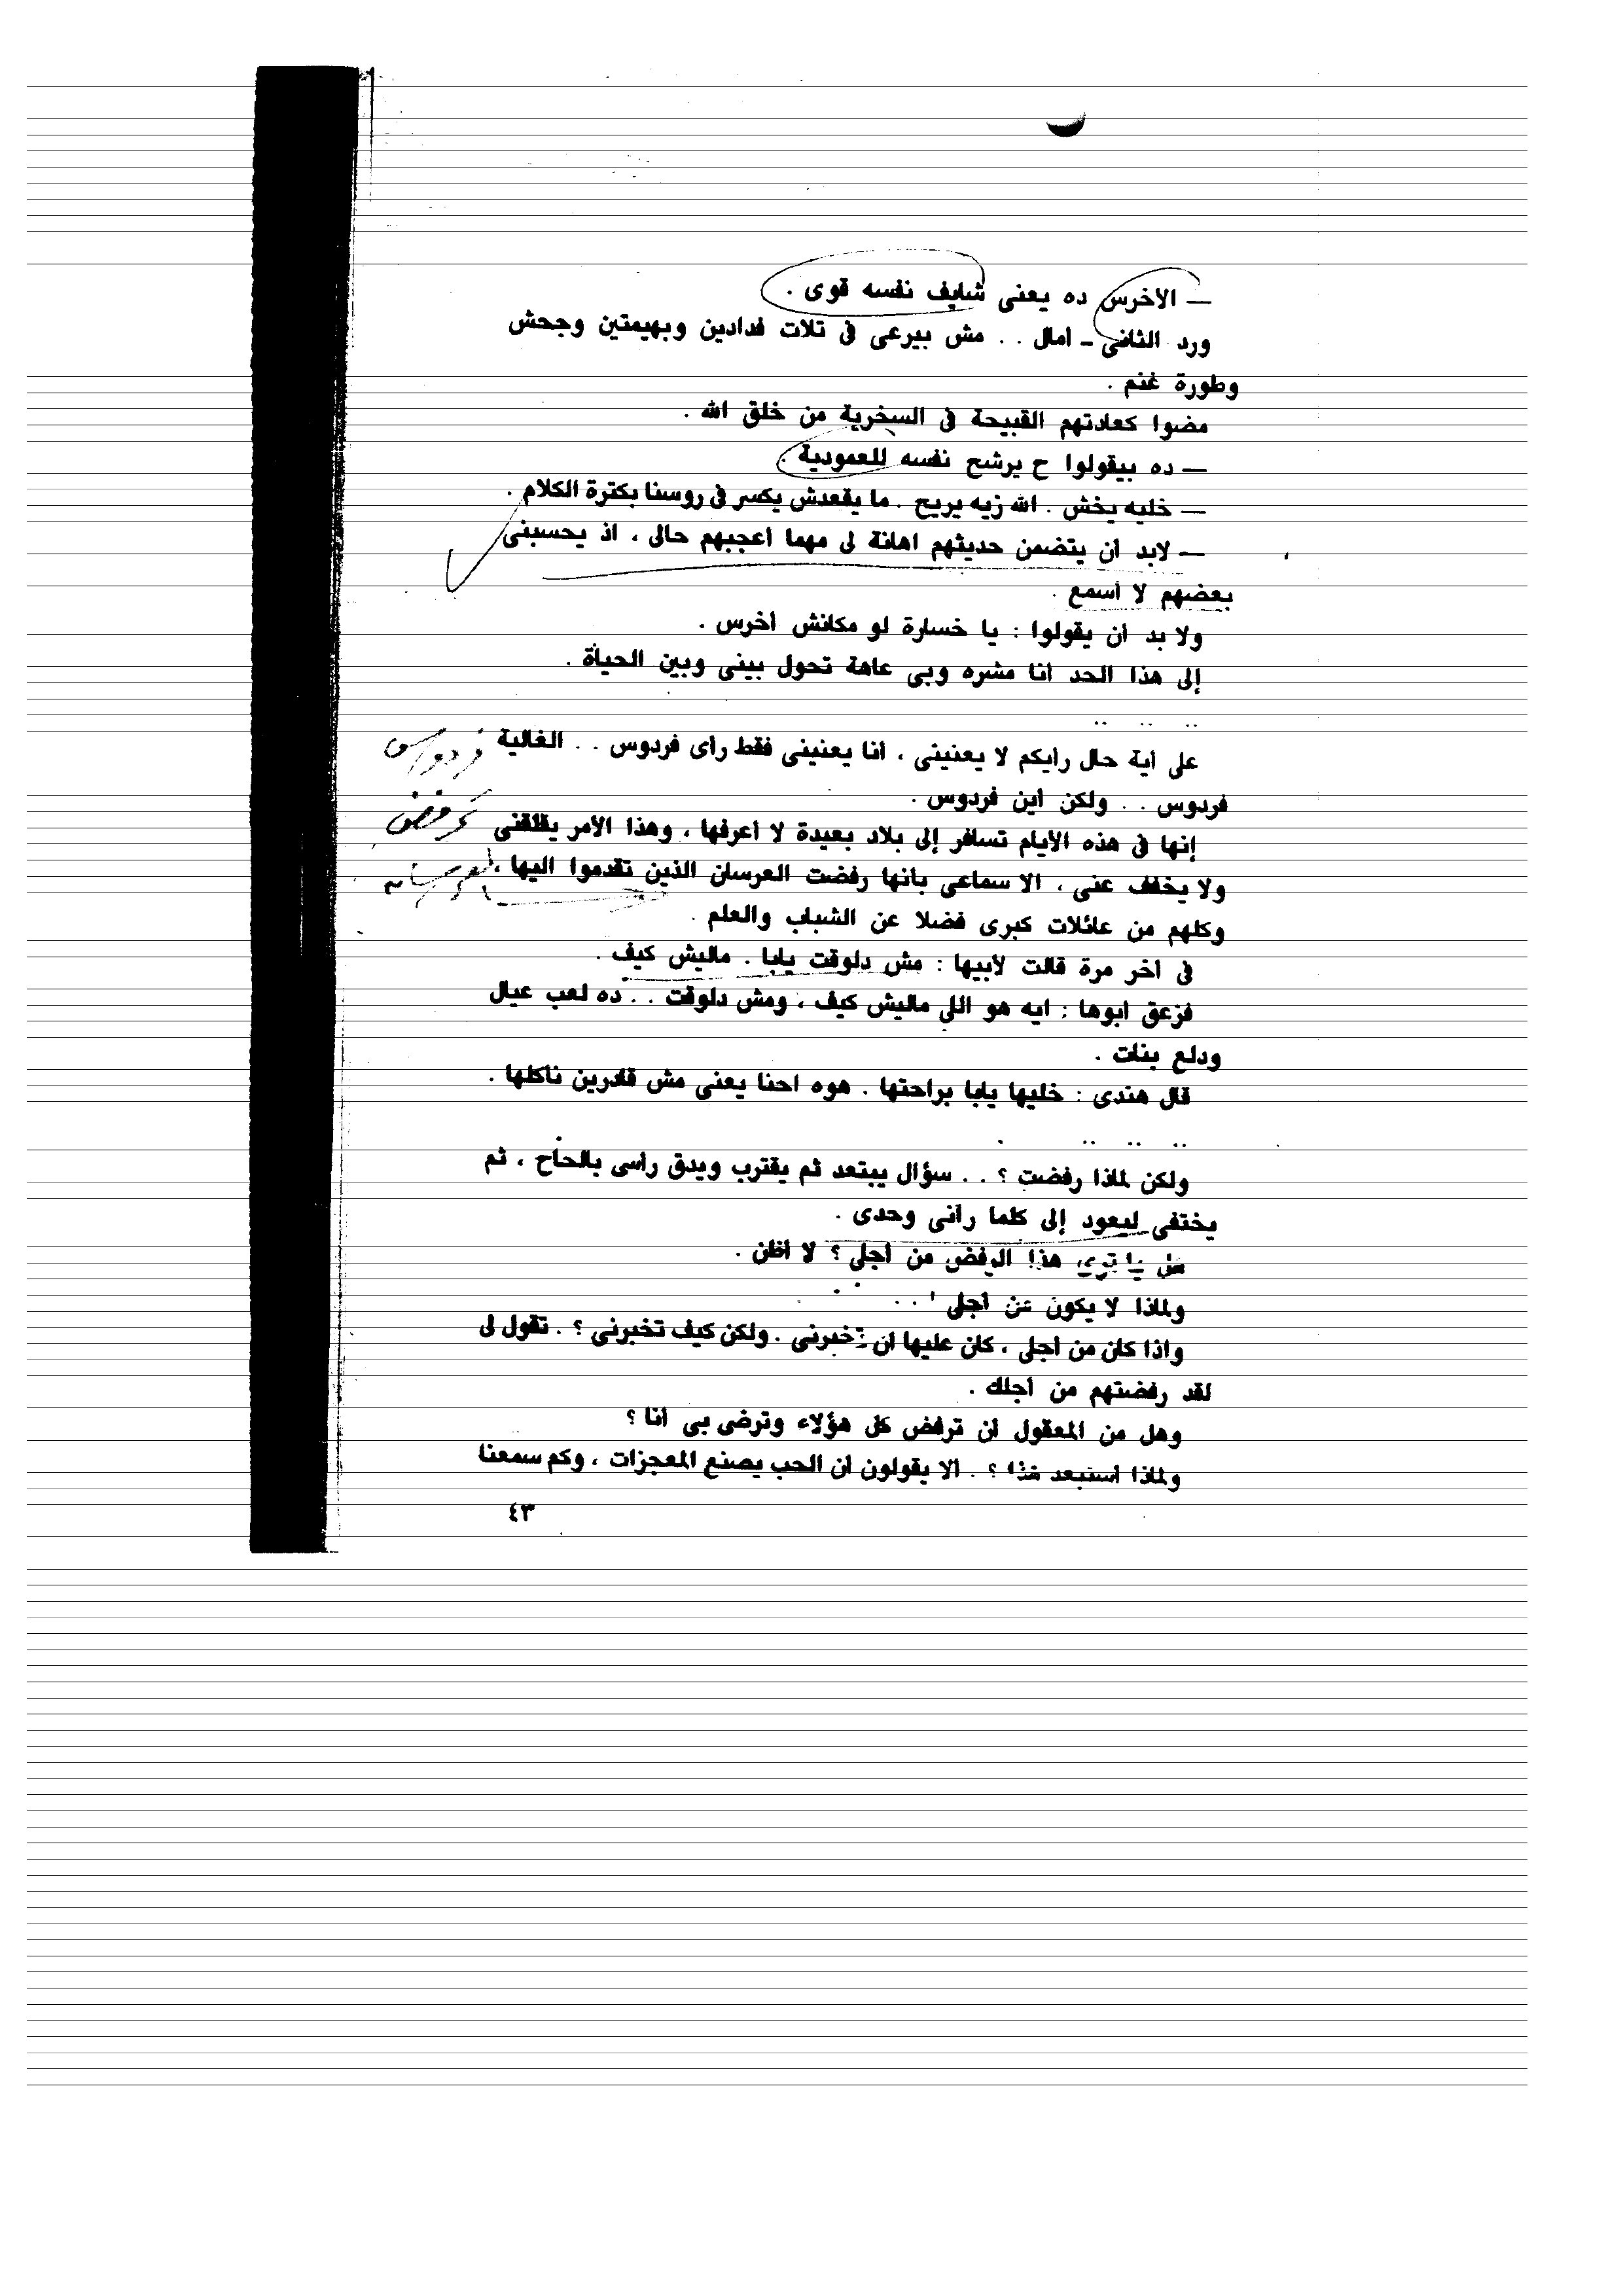 — الأخرس ده يعنى شايف نفسه قوى .
ورد الثانى - امال . . مش بيرعى فى تلات فدادين وبهيمتين وجحش
وطورة غنم .
مضوا كعادتهم القبيحة فى السخرية من خلق الله .
— ده بيقولوا ح يرشح نفسه للعمودية .
— خليه يخش . الله زيه يريح . ما يقعدش يكسر فى روسنا بكترة الكلام .
— لابد أن يتضمن حديثهم اهانة لى مهما أعجبهم حالى ، اذ يحسبنى
بعضهم لا أسمع .
ولا بد أن يقولوا : يا خسارة لو مكانش أخرس .
إلى هذا الحد أنا مشره وبى عاهة تحول بينى وبين الحياة .
.. .. ..
على أية حال رأيكم لا يعنينى ، أنا يعنينى فقط رأى فردوس . . الغالية
فردوس
فردوس . . ولكن أين فردوس .
ترفض
إنها فى هذه الأيام تسافر إلى بلاد بعيدة لا أعرفها ، وهذا الأمر يقلقنى
ولا يخفف عنى ، الا سماعى بأنها رفضت العرسان الذين تقدموا اليها ،
وكلهم من عائلات كبرى فضلا عن الشباب والعلم .
فى آخر مرة قالت لأبيها : مش دلوقت يابا . ماليش كيف .
فزعق أبوها : ايه هو اللى ماليش كيف ، ومش دلوقت . . ده لعب عيال
ودلع بنات .
قال هندى : خليها يابا براحتها . هوه احنا يعنى مش قادرين ناكلها .
.. .. ..
ولكن لماذا رفضت ؟ . . سؤال يبتعد ثم يقترب ويدق رأسى بالحاح ، ثم
يختفى ليعود إلى كلما رآنى وحدى .
هل يا ترى هذا الرفض من أجلى ؟ لا أظن .
ولماذا لا يكون من أجلى . .
واذا كان من أجلى ، كان عليها أن تخبرنى . ولكن كيف تخبرنى ؟ . تقول لى
لقد رفضتهم من أجلك .
وهل من المعقول أن ترفض كل هؤلاء وترضى بى أنا ؟
ولماذا أستبعد هذا ؟ . ألا يقولون أن الحب يصنع المعجزات ، وكم سمعنا
٤٣